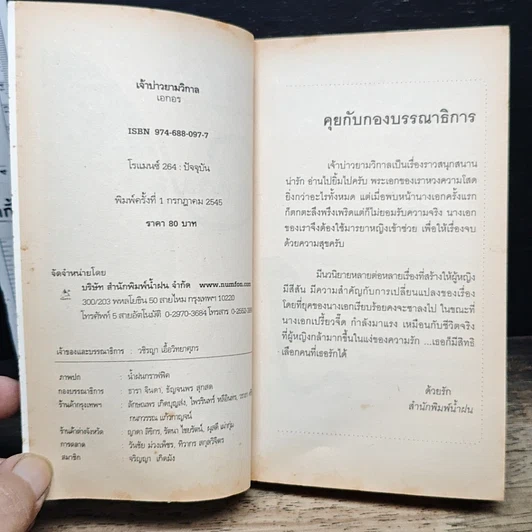 เจ้าบ่าวยามวิกาล
เอกอร
ISBN 974-688-097-7
โรแมนซ์ 264 : ปัจจุบัน
พิมพ์ครั้งที่ 1 กรกฎาคม 2545
ราคา 80 บาท
จัดจำหน่ายโดย
บริษัท สำนักพิมพ์น้ำฝน จำกัด www.numfon.
300/203 พหลโยธิน 50 สายไหม กรุงเทพฯ 10220
โทรศัพท์ 5 สายอัตโนมัติ 0-2970-3684 โทรสาร
เจ้าของและบรรณาธิการ : วชิรญา เอื้อวิทยาศุภร
ภาพปก : น้ำฝนกราฟฟิค
กองบรรณาธิการ : ธารา จินดา, ธัญจนพร สุกสด
ร้านค้ากรุงเทพฯ : ลักษณพร เกิดบุญส่ง,
กนกวรรณ แก้วกาญจน์
ร้านค้าต่างจังหวัด :
การตลาด : วันชัย ม่วงเพ็ชร,
สมาชิก : จริญญา เกิดมั่ง
คุยกับกองบรรณาธิการ
เจ้าบ่าวยามวิกาลเป็นเรื่องราวสนุกสนาน
น่ารัก อ่านไปยิ้มไปครับ พระเอกของเราหวงความโสด
ยิ่งกว่าอะไรทั้งหมด แต่เมื่อพบหน้านางเอกครั้งแรก
ก็ตกตะลึงพรึงเพริดแต่ก็ไม่ยอมรับความจริง นางเอก
ของเราจึงต้องใช้มารยาหญิงเข้าช่วย เพื่อให้เรื่องจบ
ด้วยความสุขครับ
มีนวนิยายหลายต่อหลายเรื่องที่สร้างให้ผู้หญิง
มีสีสัน มีความสำคัญกับการเปลี่ยนแปลงของเรื่อง
โดยที่ยุคของนางเอกเรียบร้อยคงจะซาลงไป ในขณะที่
นางเอกเปรี้ยวจี๊ด กำลังมาแรง เหมือนกับชีวิตจริง
ที่ผู้หญิงกล้ามากขึ้นในแง่ของความรัก ...เธอก็มีสิทธิ
เลือกคนที่เธอรักได้
ด้วยรัก
สำนักพิมพ์น้ำฝน